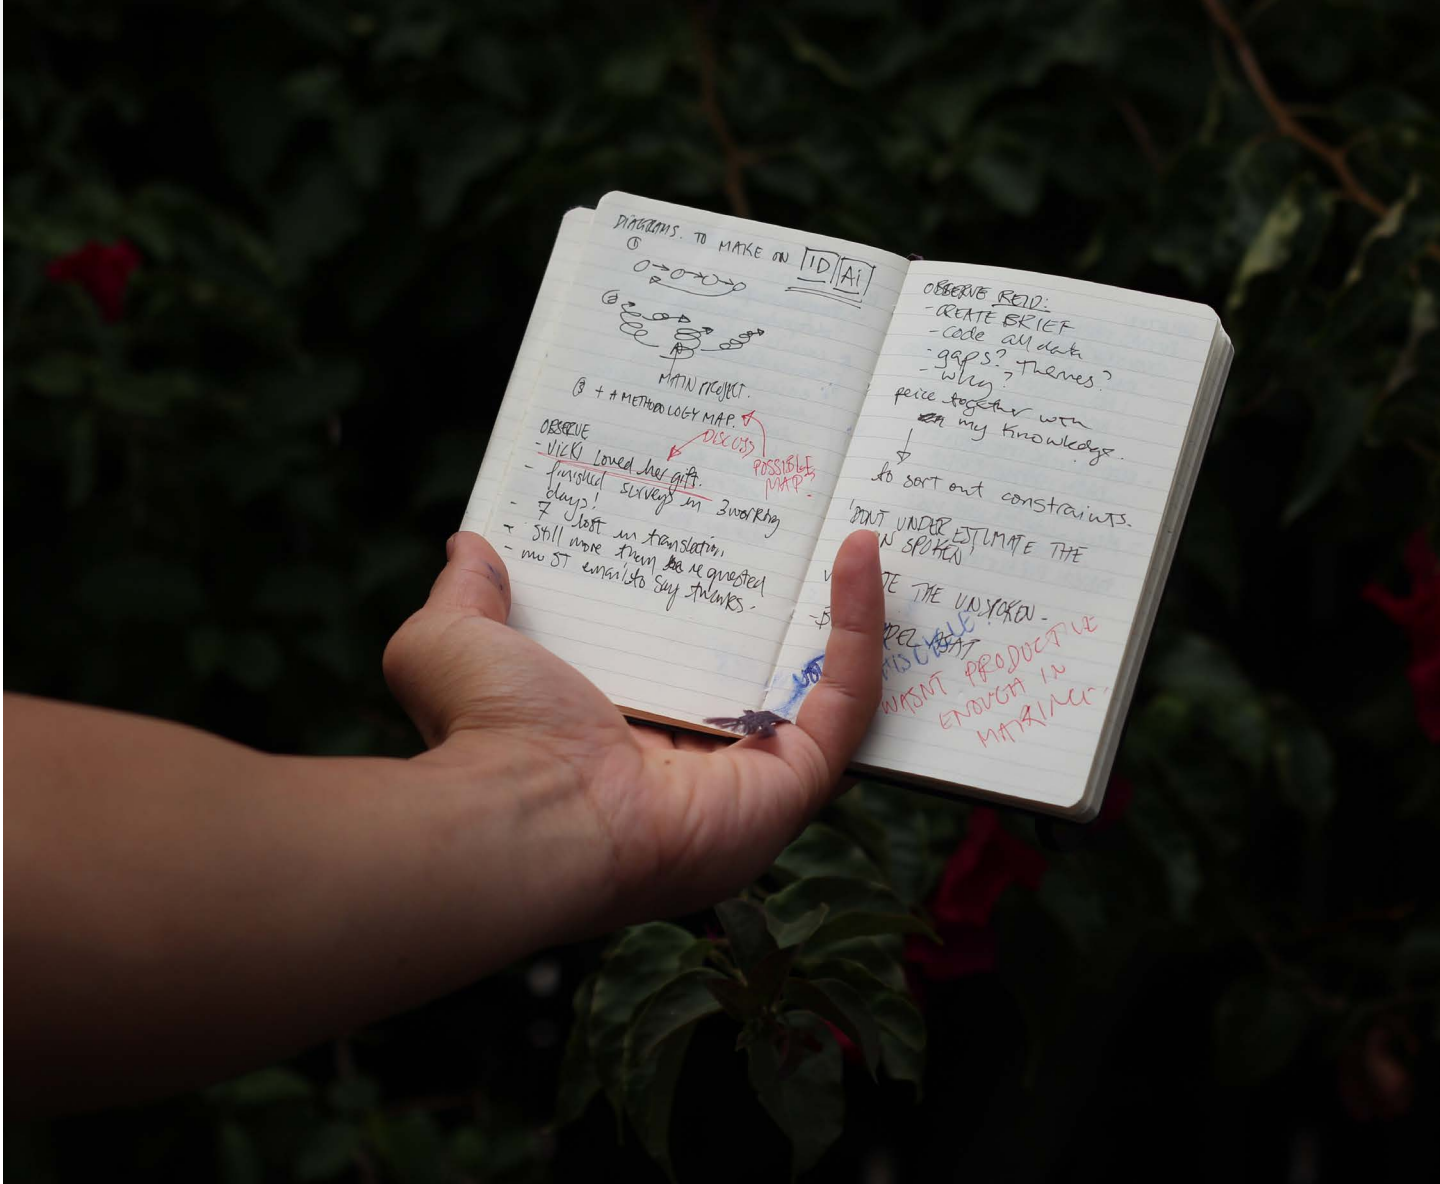 DIAGRAMS. TO MAKE ON ID Ai
①
②
MAIN PROJECT.
③ + A METHODOLOGY MAP.
DISCUSS
POSSIBLE
MAP
OBSERVE
- VICKI Loved her gift.
- finished surveys in 3 working
days!
- 7 lost in translation
- still more them requested
- email to say thanks.
OBSERVE
- CREATE BRIEF
- code all data
- gaps? themes?
- why?
peice together with
my knowledge.
to sort out constraints.
'DONT UNDERESTIMATE THE
SPOKEN'
THE UNSPOKEN.
WASNT PRODUCTIVE
ENOUGH IN